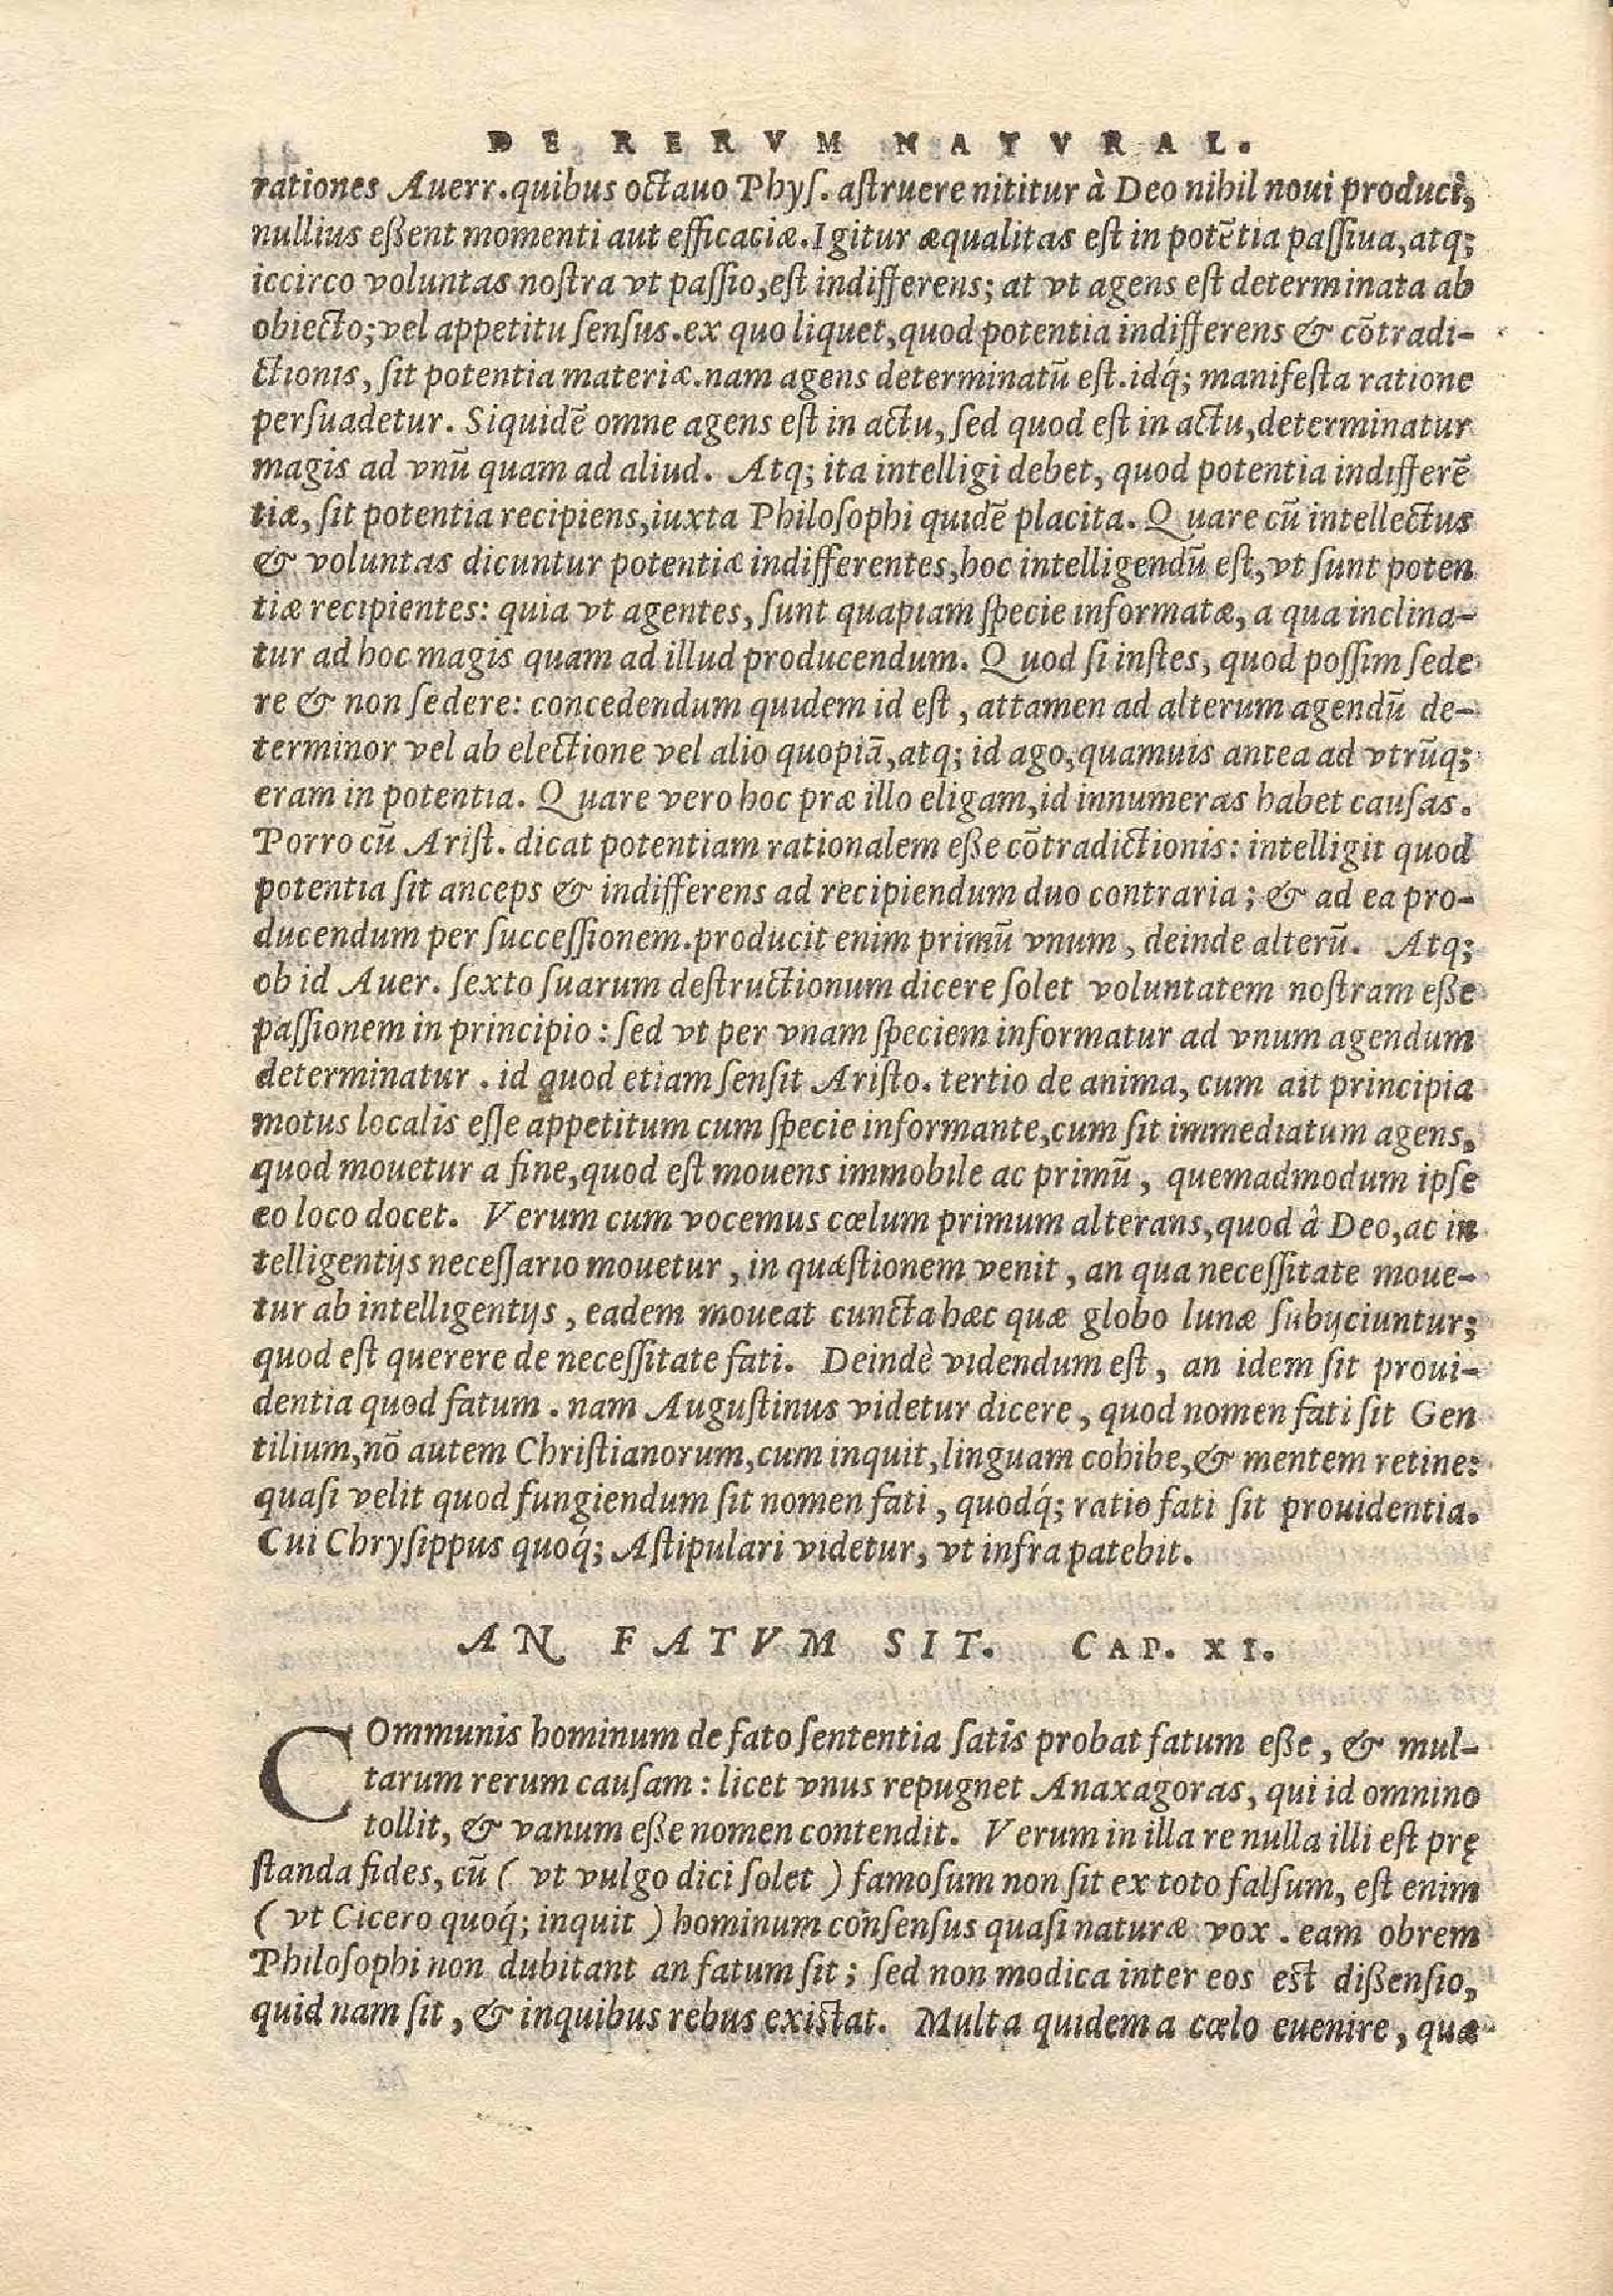 DE RERVM NATVRAL.
rationes Auerr. quibus octauo Phys. astruere nititur à Deo nihil noui produci,
nullius eßent momenti aut efficaciæ. Igitur æqualitas est in potẽtia passiua, atq;
iccirco voluntas nostra vt passio, est indifferens; at vt agens est determinata ab
obiecto; vel appetitu sensus. ex quo liquet, quod potentia indifferens & cõtradi-
ctionis, sit potentia materiæ. nam agens determinatũ est. idq́; manifesta ratione
persuadetur. Siquidẽ omne agens est in actu, sed quod est in actu, determinatur
magis ad vnũ quam ad aliud. Atq; ita intelligi debet, quod potentia indifferẽ
tiæ, sit potentia recipiens, iuxta Philosophi quidẽ placita. Quare cũ intellectus
& voluntas dicuntur potentiæ indifferentes, hoc intelligendũ est, vt sunt poten
tiæ recipientes: quia vt agentes, sunt quapiam specie informatæ, a qua inclina-
tur ad hoc magis quam ad illud producendum. Quod si instes, quod possim sede
re & non sedere: concedendum quidem id est, attamen ad alterum agendũ de-
terminor vel ab electione vel alio quopiã, atq; id ago, quamuis antea ad vtrũq;
eram in potentia. Quare vero hoc præ illo eligam, id innumeras habet causas.
Porro cũ Arist. dicat potentiam rationalem eße cõtradictionis: intelligit quod
potentia sit anceps & indifferens ad recipiendum duo contraria; & ad ea pro-
ducendum per successionem. producit enim primũ vnum, deinde alterũ. Atq;
ob id Auer. sexto suarum destructionum dicere solet voluntatem nostram eße
passionem in principio: sed vt per vnam speciem informatur ad vnum agendum
determinatur. id quod etiam sensit Aristo. tertio de anima, cum ait principia
motus localis esse appetitum cum specie informante, cum sit immediatum agens,
quod mouetur a fine, quod est mouens immobile ac primũ, quemadmodum ipse
eo loco docet. Verum cum vocemus cœlum primum alterans, quod â Deo, ac in
telligentijs necessario mouetur, in quæstionem venit, an qua necessitate moue-
tur ab intelligentijs, eadem moueat cuncta hæc quæ globo lunæ subijciuntur;
quod est querere de necessitate fati. Deindè videndum est, an idem sit proui-
dentia quod fatum. nam Augustinus videtur dicere, quod nomen fati sit Gen
tilium, nõ autem Christianorum, cum inquit, linguam cohibe, & mentem retine:
quasi velit quod fungiendum sit nomen fati, quodq́; ratio fati sit prouidentia.
Cui Chrysippus quoq́; Astipulari videtur, vt infra patebit.
AN FATVM SIT. CAP. XI.
COmmunis hominum de fato sententia satis probat fatum eße, & mul-
tarum rerum causam: licet vnus repugnet Anaxagoras, qui id omnino
tollit, & vanum eße nomen contendit. Verum in illa re nulla illi est prę
standa fides, cũ ( vt vulgo dici solet ) famosum non sit ex toto falsum, est enim
( vt Cicero quoq́; inquit ) hominum consensus quasi naturæ vox. eam obrem
Philosophi non dubitant an fatum sit; sed non modica inter eos est dißensio,
quid nam sit, & inquibus rebus existat. Multa quidem a cœlo euenire, quæ